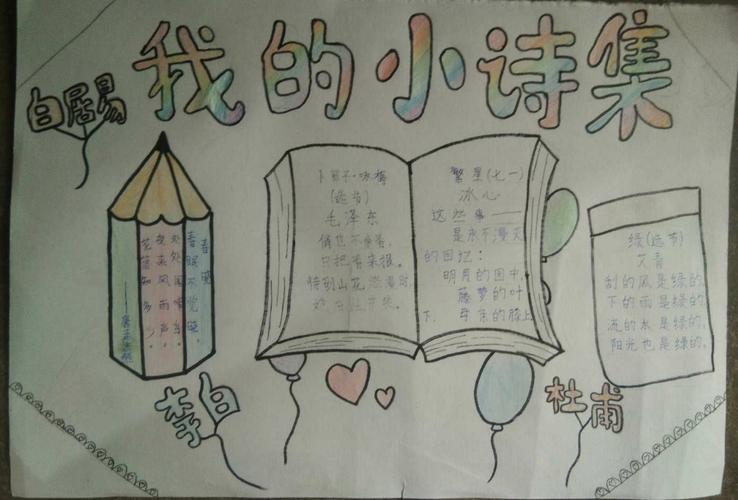 我的小诗集
白居易
春晓
春眠不觉晓，
处处闻啼鸟。
夜来风雨声，
花落知多少。
卜算子·咏梅
(选节)
毛泽东
俏也不争春，
只把春来报。
待到山花烂漫时，
她在丛中笑。
繁星(七一)
冰心
这些事——
是永不漫灭
的回忆：
明月的园中，
藤萝的叶
下，母亲的膝上
绿(选节)
艾青
刮的风是绿的，
下的雨是绿的，
流的水是绿的，
阳光也是绿的。
李白
杜甫